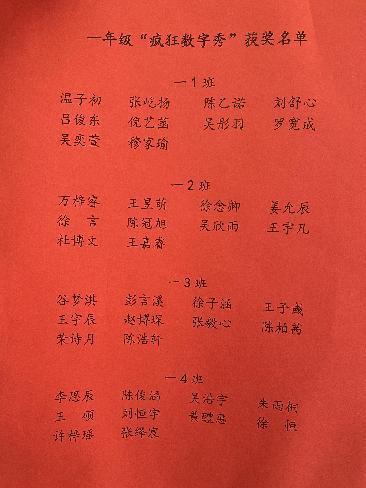 一年级“疯狂数字秀”获奖名单
一1班
温子初 张屹扬 陈乙诺 刘舒心
吕俊东 倪艺菡 吴彤羽 罗宽成
吴奕萱 穆家瑜
一2班
万烨睿 王昱萌 徐念卿 姜允辰
徐言 陈冠旭 吴欣雨 王宇凡
杜博文 王嘉睿
一3班
谷梦淇 彭言溪 徐子涵 王子彧
王宇辰 赵烨琛 张毅心 陈柏蒿
荣诗月 陈浩轩
一4班
李恩辰 陈俊涵 吴浩宇 朱雨桐
王硕 刘恒宇 徐恒
许梓瑶